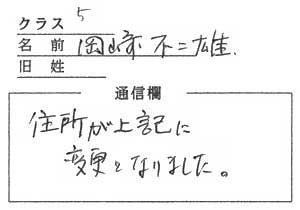 クラス 5
名前 岡崎不二雄.
旧姓
通信欄
住所が上記に
変更となりました。